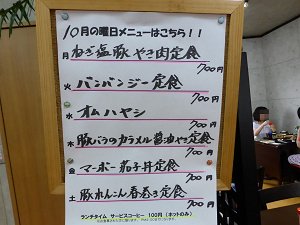 10月の曜日メニューはこちら！！
月 ねぎ塩豚やき肉定食
700円
火 バンバンジー定食
700円
水 オムハヤシ
700円
木 豚バラのカラメル醤油やき定食
700円
金 マーボー茄子丼定食
700円
土 豚れんこん春巻き定食
700円
ランチタイム サービスコーヒー 100円（ホットのみ）